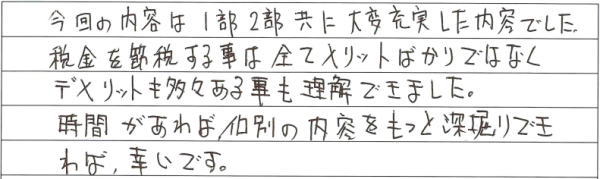 今回の内容は1部2部共に大変充実した内容でした。
税金を節税する事は全てメリットばかりではなく
デメリットも多々ある事も理解できました。
時間があれば、個別の内容をもっと深掘りでき
れば、幸いです。